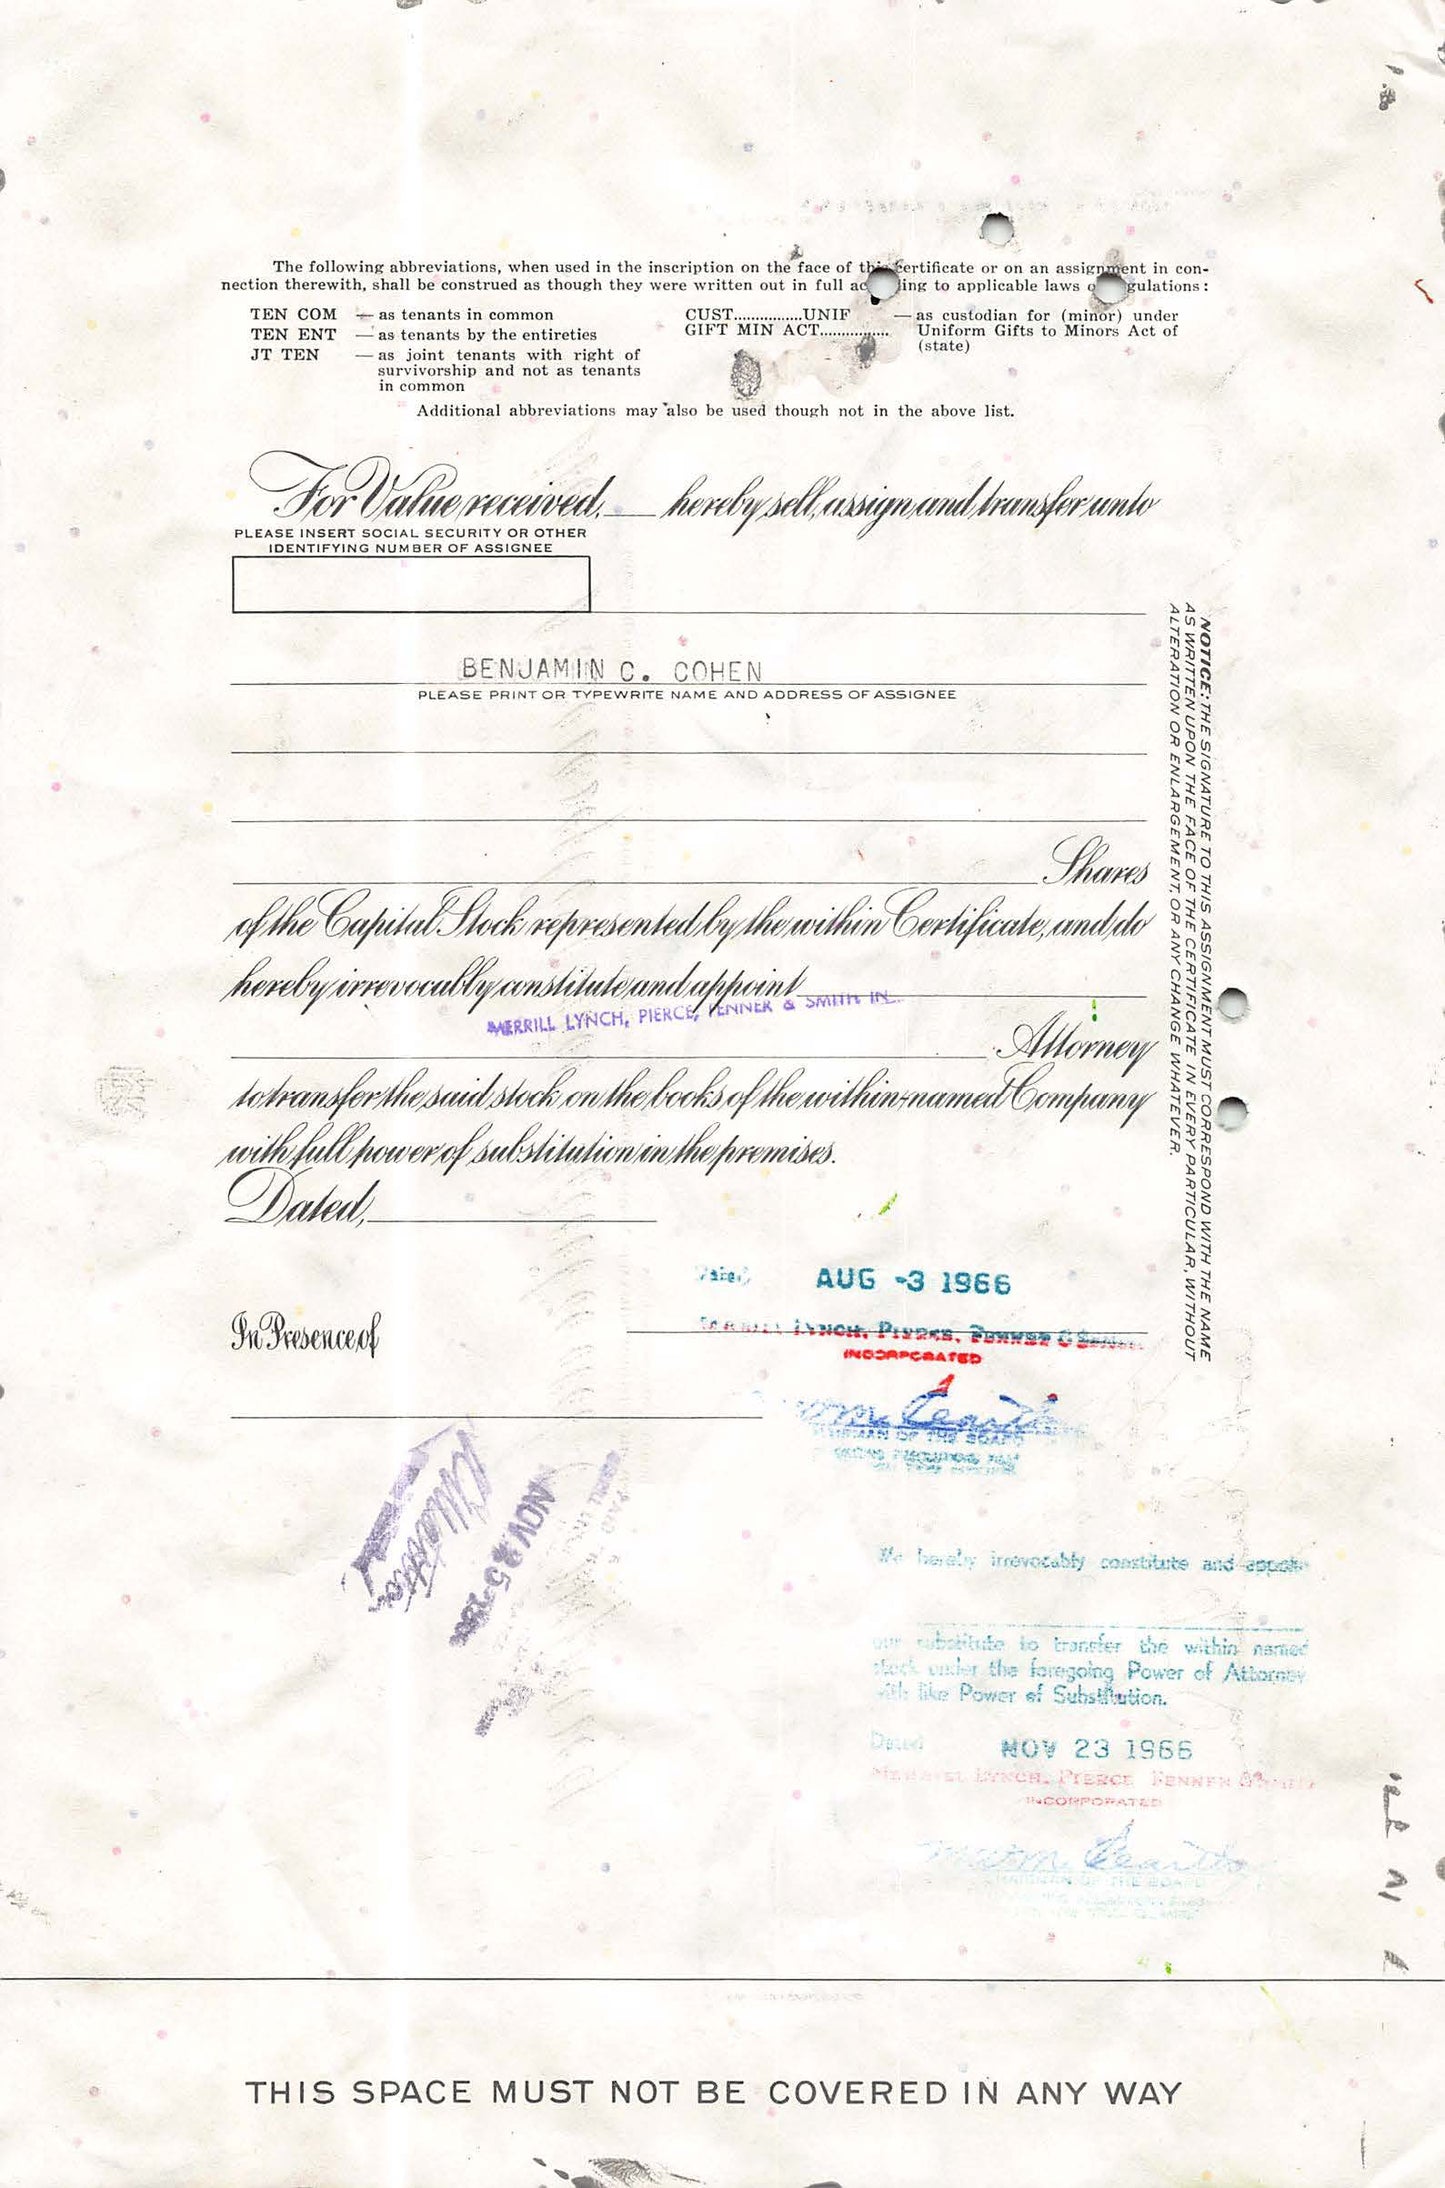 The following abbreviations, when used in the inscription on the face of this certificate or on an assignment in con-
nection therewith, shall be construed as though they were written out in full ac ing to applicable laws o gulations:
TEN COM — as tenants in common
TEN ENT — as tenants by the entireties
JT TEN — as joint tenants with right of
survivorship and not as tenants
in common
CUST................UNIF — as custodian for (minor) under
GIFT MIN ACT................ Uniform Gifts to Minors Act of
(state)
Additional abbreviations may also be used though not in the above list.
For Value received, ____ hereby sell, assign and transfer unto
PLEASE INSERT SOCIAL SECURITY OR OTHER
IDENTIFYING NUMBER OF ASSIGNEE
BENJAMIN C. COHEN
PLEASE PRINT OR TYPEWRITE NAME AND ADDRESS OF ASSIGNEE
Shares
of the Capital Stock represented by the within Certificate, and do
hereby irrevocably constitute and appoint
MERRILL LYNCH, PIERCE, FENNER & SMITH
Attorney
to transfer the said stock on the books of the within-named Company
with full power of substitution in the premises.
Dated,
NOTICE: THE SIGNATURE TO THIS ASSIGNMENT MUST CORRESPOND WITH THE NAME
AS WRITTEN UPON THE FACE OF THE CERTIFICATE IN EVERY PARTICULAR, WITHOUT
ALTERATION OR ENLARGEMENT, OR ANY CHANGE WHATEVER.
Dated AUG -3 1966
In Presence of
MERRILL LYNCH, PIERCE, FENNER & SMITH
INCORPORATED
CHAIRMAN OF THE BOARD
NOV 25
We hereby irrevocably constitute and appoint
our substitute to transfer the within named
stock under the foregoing Power of Attorney
with like Power of Substitution.
Dated NOV 23 1966
MERRILL LYNCH, PIERCE FENNER & SMITH
INCORPORATED
CHAIRMAN OF THE BOARD
THIS SPACE MUST NOT BE COVERED IN ANY WAY